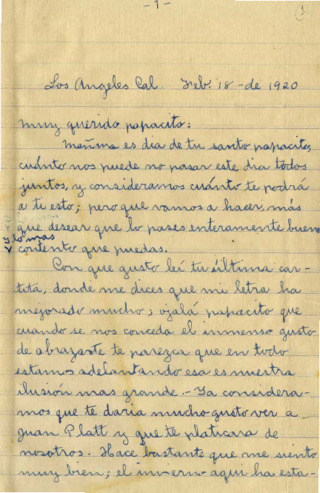 - 1 -
Los Angeles Cal. Feb. 18 - de 1920
Muy querido papacito:
Mañana es dia de tu santo papacito,
cuánto nos puede no pasar este dia todos
juntos, y consideramos cuánto te podrá
a tu esto; pero que vamos a hacer, más
que desear que lo pases enteramente bueno
y lo mas
contento que puedas.
Con que gusto leí tu última car-
tita, donde me dices que mi letra ha
mejorado mucho; ojalá papacito que
cuando se nos conceda el inmenso gusto
de abrazarte te parezca que en todo
estamos adelantando esa es nuestra
ilusión mas grande. - Ya considera-
mos que te daria mucho gusto ver a
Juan Platt y que te platicara de
nosotros. Hace bastante que me siento
muy bien; el invierno aqui ha esta-